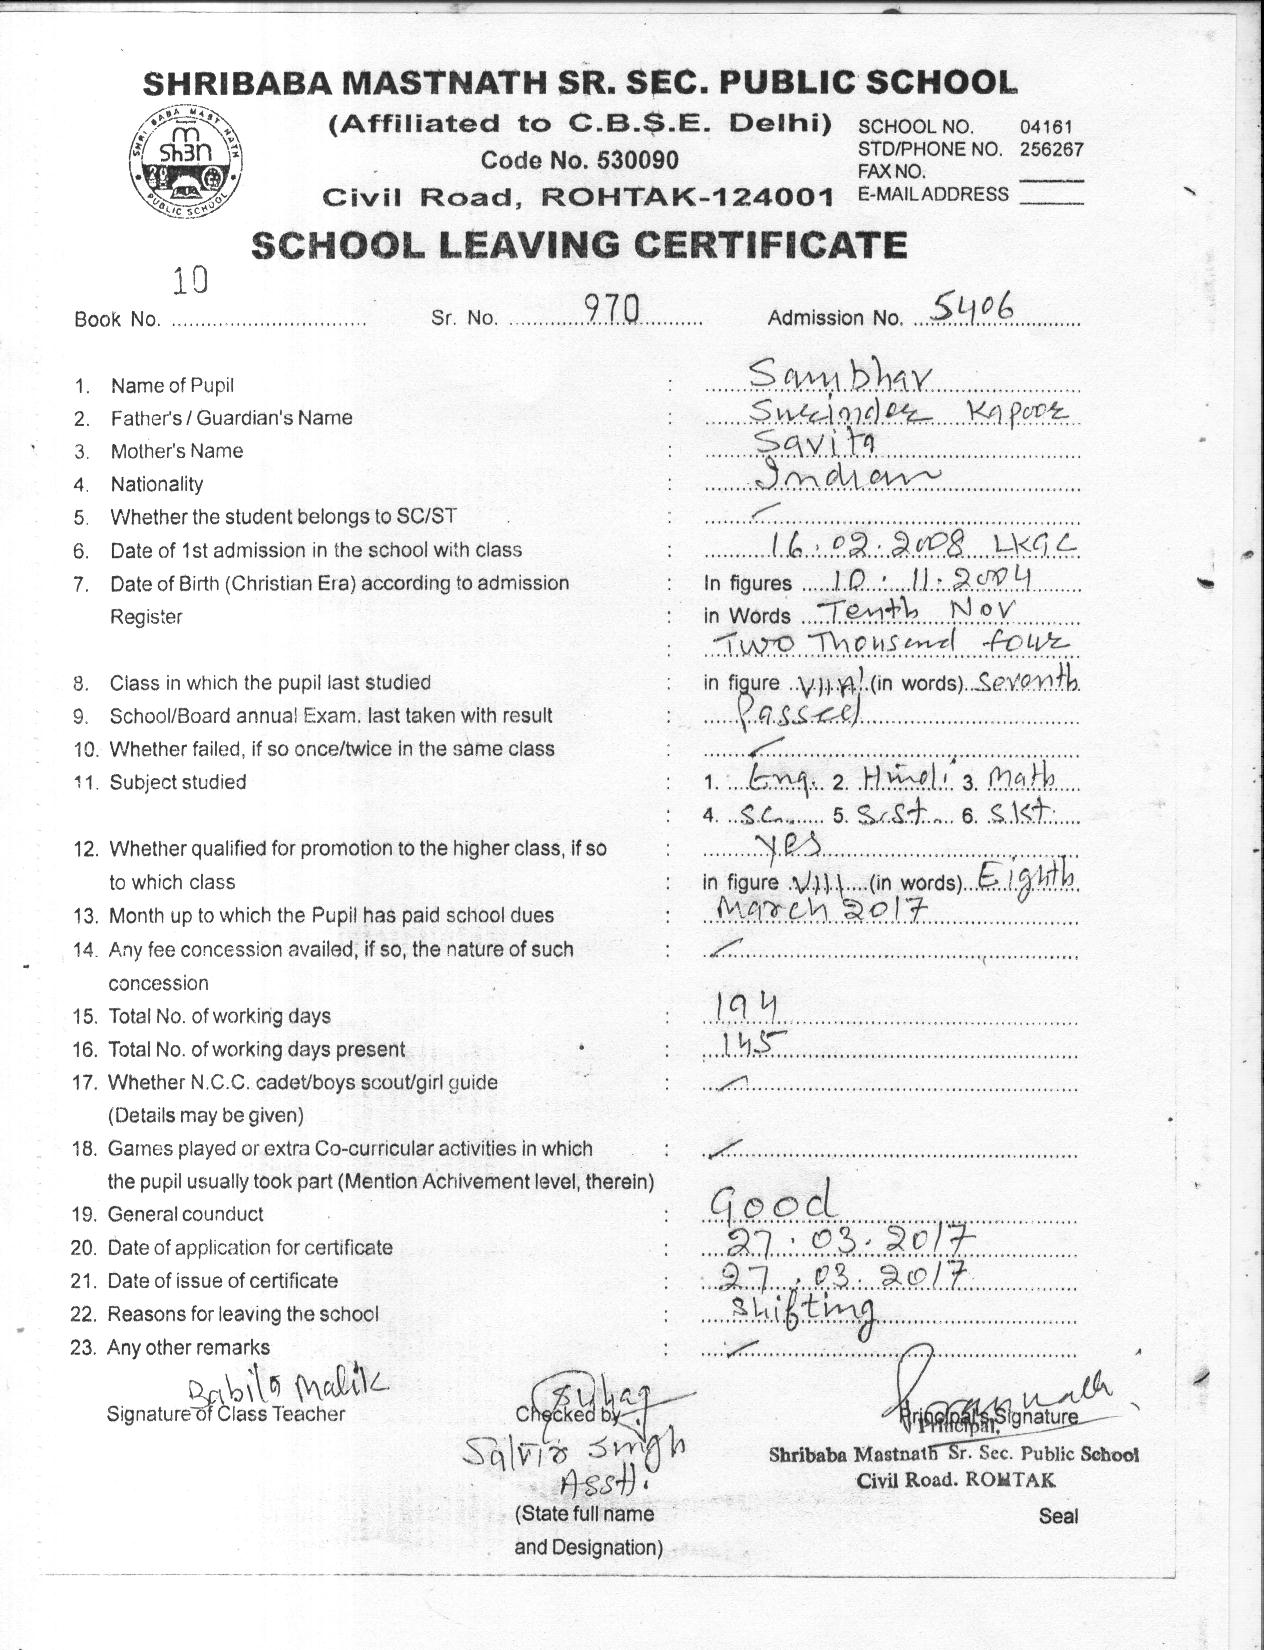 SHRIBABA MASTNATH SR. SEC. PUBLIC SCHOOL
SHRI BABA MAST NATH PUBLIC SCHOOL
(Affiliated to C.B.S.E. Delhi)
Code No. 530090
Civil Road, ROHTAK-124001
SCHOOL NO. 04161
STD/PHONE NO. 256267
FAX NO.
E-MAIL ADDRESS
SCHOOL LEAVING CERTIFICATE
Book No. 10 Sr. No. 970 Admission No. 5406
1. Name of Pupil : Sambhav
2. Father's / Guardian's Name : Surinder Kapoor
3. Mother's Name : Savita
4. Nationality : Indian
5. Whether the student belongs to SC/ST :
6. Date of 1st admission in the school with class : 16.02.2008 LKG C
7. Date of Birth (Christian Era) according to admission : In figures 10.11.2004
Register : in Words Tenth Nov
: Two Thousand four
8. Class in which the pupil last studied : in figure VII A (in words) Seventh
9. School/Board annual Exam. last taken with result : Passed
10. Whether failed, if so once/twice in the same class :
11. Subject studied : 1. Eng. 2. Hindi 3. Math
: 4. Sc. 5. S.St. 6. Skt.
12. Whether qualified for promotion to the higher class, if so : Yes
to which class : in figure VIII (in words) Eighth
13. Month up to which the Pupil has paid school dues : March 2017
14. Any fee concession availed, if so, the nature of such :
concession
15. Total No. of working days : 194
16. Total No. of working days present : 145
17. Whether N.C.C. cadet/boys scout/girl guide :
(Details may be given)
18. Games played or extra Co-curricular activities in which :
the pupil usually took part (Mention Achivement level, therein)
19. General counduct : Good
20. Date of application for certificate : 27.03.2017
21. Date of issue of certificate : 27.03.2017
22. Reasons for leaving the school : Shifting
23. Any other remarks :
Babita Malik
Signature of Class Teacher Checked by Principal's Signature
Principal,
Singh
Asstt.
Shribaba Mastnath Sr. Sec. Public School
Civil Road. ROHTAK
(State full name Seal
and Designation)